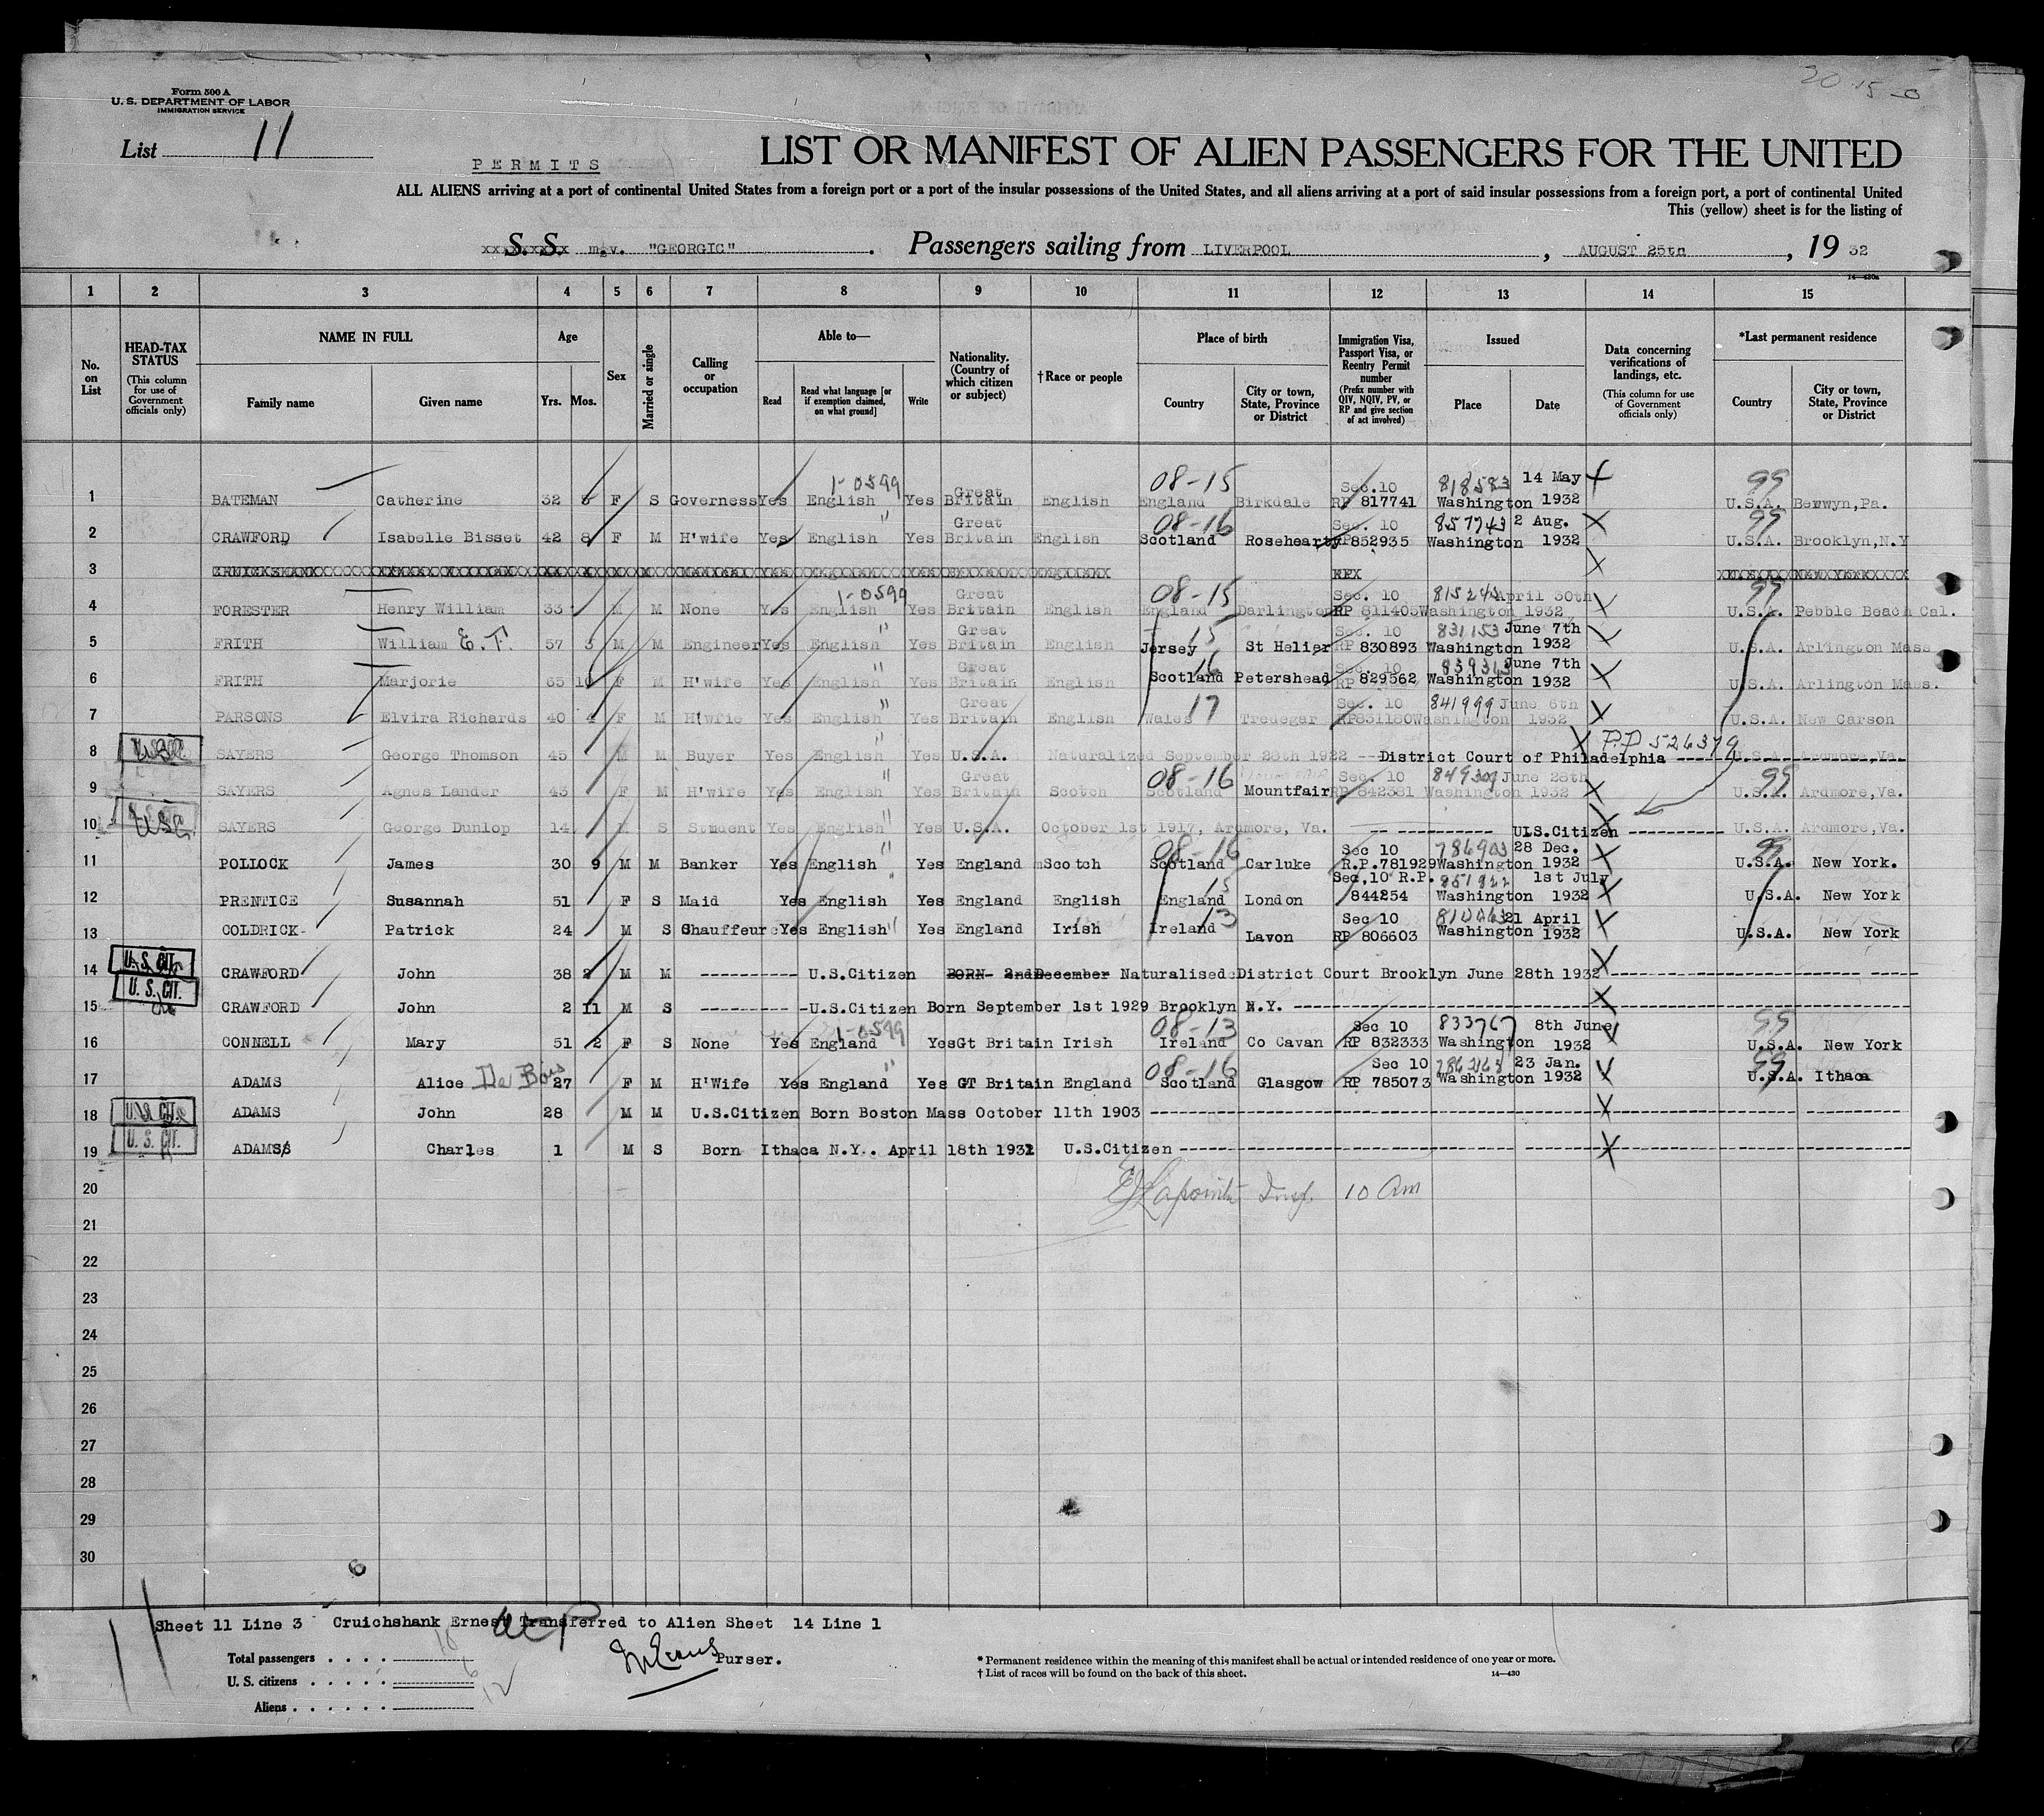 20 15-0
Form 500 A
U. S. DEPARTMENT OF LABOR
IMMIGRATION SERVICE
List 11
PERMITS
LIST OR MANIFEST OF ALIEN PASSENGERS FOR THE UNITED
ALL ALIENS arriving at a port of continental United States from a foreign port or a port of the insular possessions of the United States, and all aliens arriving at a port of said insular possessions from a foreign port, a port of continental United
This (yellow) sheet is for the listing of
S. S. m.v. "GEORGIC" . Passengers sailing from LIVERPOOL , AUGUST 25th , 19 32
14—430a
1 2 3 4 5 6 7 8 9 10 11 12 13 14 15
No. on List
HEAD-TAX STATUS
(This column for use of Government officials only)
NAME IN FULL
Family name Given name
Age
Yrs. Mos.
Sex
Married or single
Calling or occupation
Able to—
Read Read what language [or if exemption claimed, on what ground] Write
Nationality. (Country of which citizen or subject)
†Race or people
Place of birth
Country City or town, State, Province or District
Immigration Visa, Passport Visa, or Reentry Permit number
(Prefix number with QIV, NQIV, PV, or RP and give section of act involved)
Issued
Place Date
Data concerning verifications of landings, etc.
(This column for use of Government officials only)
*Last permanent residence
Country City or town, State, Province or District
1-0599 Great 08-15 Sec.10 818583 14 May 99
1 BATEMAN Catherine 32 5 F S Governess Yes English Yes Britain English England Birkdale RP 817741 Washington 1932 U.S.A. Berwyn,Pa.
" Great 08-16 Sec. 10 857743 2 Aug. 99
2 CRAWFORD Isabelle Bisset 42 8 F M H'wife Yes English Yes Britain English Scotland Rosehearty RP 852935 Washington 1932 U.S.A. Brooklyn,N.Y
3
1-0599 Great 08-15 Sec. 10 815245 April 30th 99
4 FORESTER Henry William 33 M M None Yes English Yes Britain English England Darlington RP 811405 Washington 1932 U.S.A. Pebble Beach Cal.
" Great 15 Sec. 10 831153 June 7th
5 FRITH William E. T. 57 3 M M Engineer Yes English Yes Britain English Jersey St Helier RP 830893 Washington 1932 U.S.A. Arlington Mass
" Great 16 Sec. 10 839313 June 7th
6 FRITH Marjorie 65 10 F M H'wife Yes English Yes Britain English Scotland Petershead RP 829562 Washington 1932 U.S.A. Arlington Mass.
" Great 17 Sec. 10 841999 June 6th
7 PARSONS Elvira Richards 40 4 F M H'wfie Yes English Yes Britain English Wales Tredegar RP831180 Washington 1932 U.S.A. New Carson
" P.P 526379
8 SAYERS George Thomson 45 M M Buyer Yes English Yes U.S.A. Naturalized September 28th 1922 --District Court of Philadelphia U.S.A. Ardmore,Va.
" Great 08-16 Sec. 10 June 28th 99
9 SAYERS Agnes Lander 43 F M H'wife Yes English Yes Britain Scotch Scotland Mountfair RP 842381 Washington 1932 U.S.A. Ardmore,Va.
"
10 USC SAYERS George Dunlop 14 M S Student Yes English Yes U.S.A. October 1st 1917, Ardmore, Va. -- ---------- U.S.Citizen ---------- U.S.A. Ardmore,Va.
" 08-16 Sec 10 786903 28 Dec. 99
11 POLLOCK James 30 9 M M Banker Yes English Yes England Scotch Scotland Carluke R.P.781929 Washington 1932 U.S.A. New York.
15 Sec,10 R.P. 851922 1st July
12 PRENTICE Susannah 51 F S Maid Yes English Yes England English England London 844254 Washington 1932 U.S.A. New York
" 13 Sec 10 21 April
13 COLDRICK Patrick 24 M S Chauffeur Yes English Yes England Irish Ireland Lavon RP 806603 Washington 1932 U.S.A. New York
14 U. S. CIT. CRAWFORD John 38 2 M M ---------- U.S.Citizen BORN- 2ndDecember Naturalised District Court Brooklyn June 28th 1932
15 U. S. CIT. CRAWFORD John 2 11 M S ---------- -U.S.Citizen Born September 1st 1929 Brooklyn N.Y.
1-0599 08-13 Sec 10 833767 8th June 99
16 CONNELL Mary 51 2 F S None Yes England Yes Gt Britain Irish Ireland Co Cavan RP 832333 Washington 1932 U.S.A. New York
" 08-16 Sec 10 23 Jan. 99
17 ADAMS Alice Du Bois 27 F M H'Wife Yes England Yes GT Britain England Scotland Glasgow RP 785073 Washington 1932 U.S.A. Ithaca
18 U.S. CIT. ADAMS John 28 M M U.S.Citizen Born Boston Mass October 11th 1903
19 U. S. CIT. ADAMS Charles 1 M S Born Ithaca N.Y. April 18th 1931 U.S.Citizen
20 10 Am
21
22
23
24
25
26
27
28
29
30
6
Sheet 11 Line 3 Cruichshank Ernest Transferred to Alien Sheet 14 Line 1
11
Total passengers . . . . 18
U. S. citizens . . . . . 6
Aliens . . . . . . 12
Purser.
* Permanent residence within the meaning of this manifest shall be actual or intended residence of one year or more.
† List of races will be found on the back of this sheet.
14—430